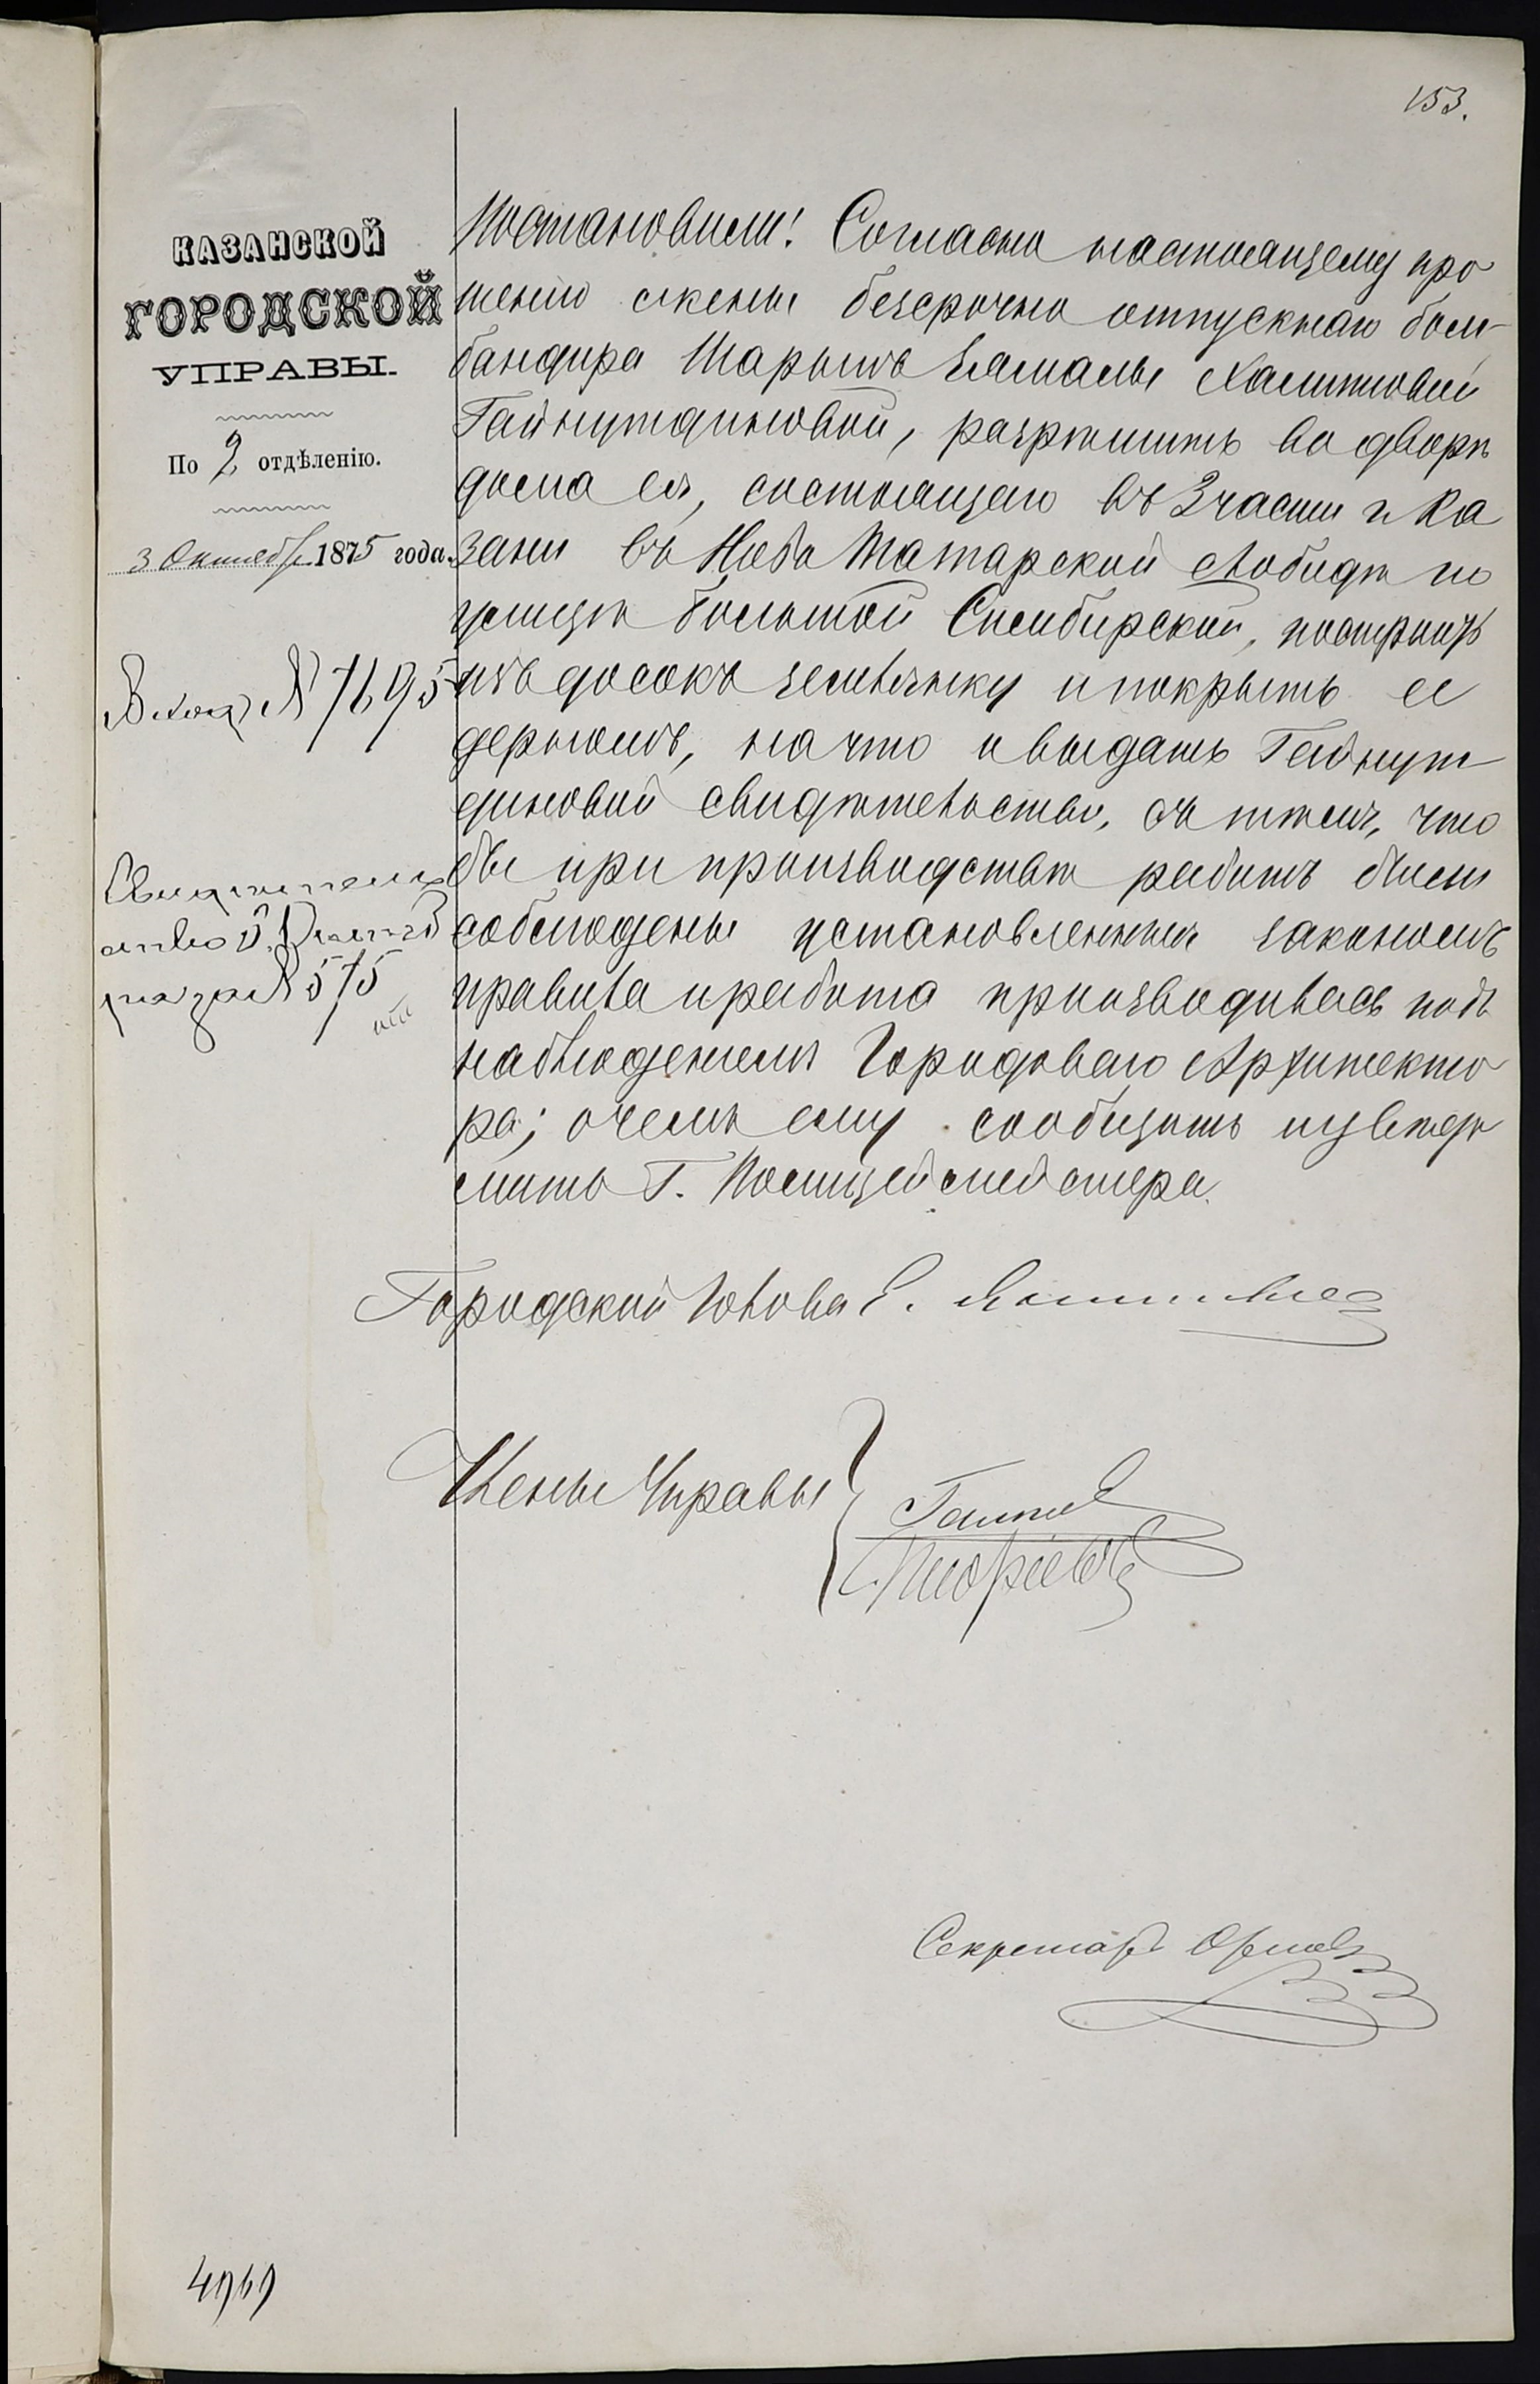 153.
КАЗАНСКОЙ
ГОРОДСКОЙ
УПРАВЫ.
По 2 отдѣленію.
3 Октября 1875 года.
Вход № 7695
Свидѣтель
ство
за № 575
Постановили: Согласно настоящему про
шенію жены безсрочно отпускнаго бом-
бандира Шарыпъ Ямалы Халитовой
Гайнутдиновой, разрѣшить во дворѣ
дома ея, состоящаго въ 3 части г. Ка
зани въ Ново Татарской слободѣ по
улицѣ большой Симбирской, построить
изъ досокъ землянку и покрыть ее
дерномъ, на что и выдать Гайнут
диновой свидѣтельство, съ тѣмъ, что
бы при производствѣ работъ были
соблюдены установленныя закономъ
правила и работа производилась подъ
наблюденіемъ Городоваго Архитекто
ра; о чемъ ему сообщить и увѣдо
мить Г. Полицеймейстера.
Городской Голова Е.
Члены Управы
Секретарь Орлов
4969